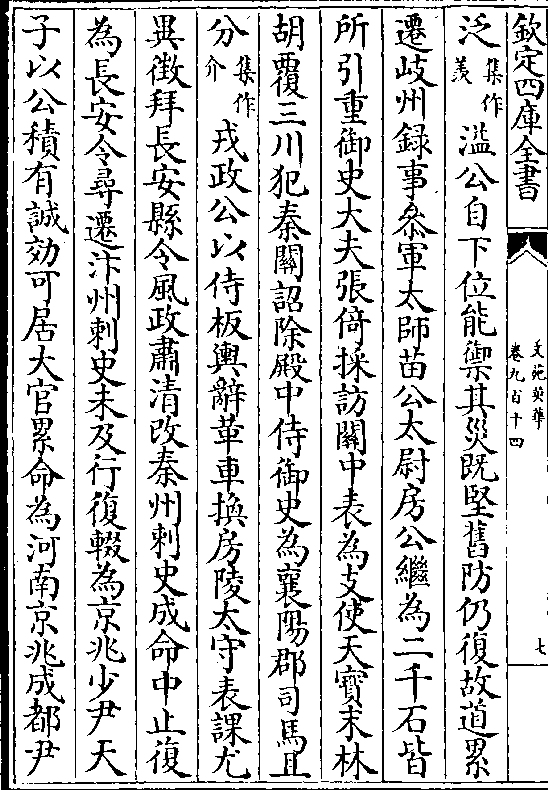 欽定四庫全書
文苑英華
卷九百十四
七
泛集作羨溢公自下位能禦其災既堅舊防仍復故道累
遷岐州録事叅軍太師苗公太尉房公繼為二千石皆
所引重御史大夫張倚採訪關中表為支使天寶末林
胡覆三川犯秦關詔除殿中侍御史為襄陽郡司馬且
分集作介戎政公以侍板輿辭革車換房陵太守表課尤
異徴拜長安縣令風政肅清改秦州刺史成命中止復
為長安令尋遷汴州刺史未及行復輟為京兆少尹天
子以公積有誠効可居大官累命為河南京兆成都尹